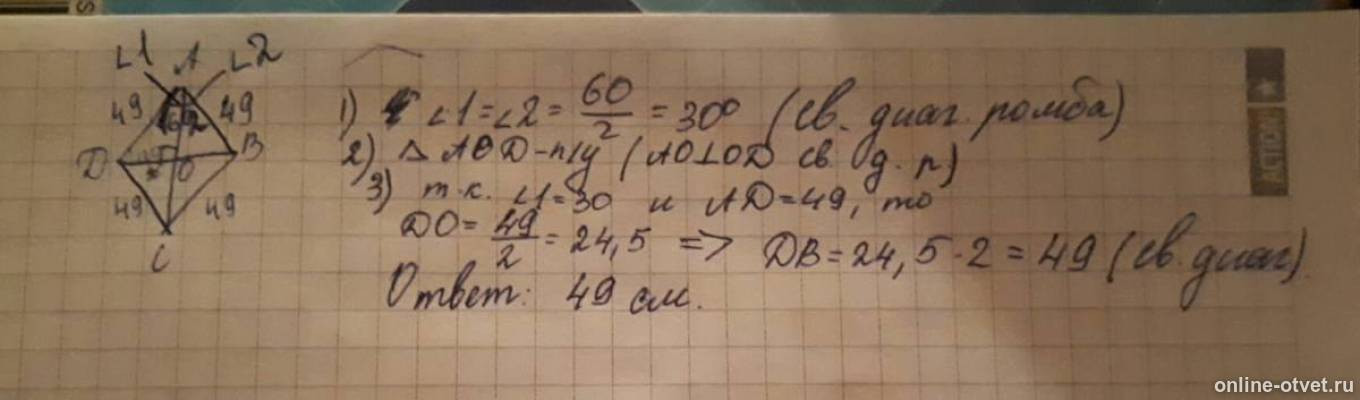 S
∠1 A ∠2
49 49
D O B
49 49
C
1) ∠1=∠2= 60/2 =30° (св. диаг. ромба)
2) △ AOD-п/у (AO⊥OD св. д. р)
3) т.к. ∠1=30 и AD=49, то
DO= 49/2 = 24,5 => DB=24,5·2=49 (св. диаг).
Ответ: 49 см.
ACTION!
online-otvet.ru